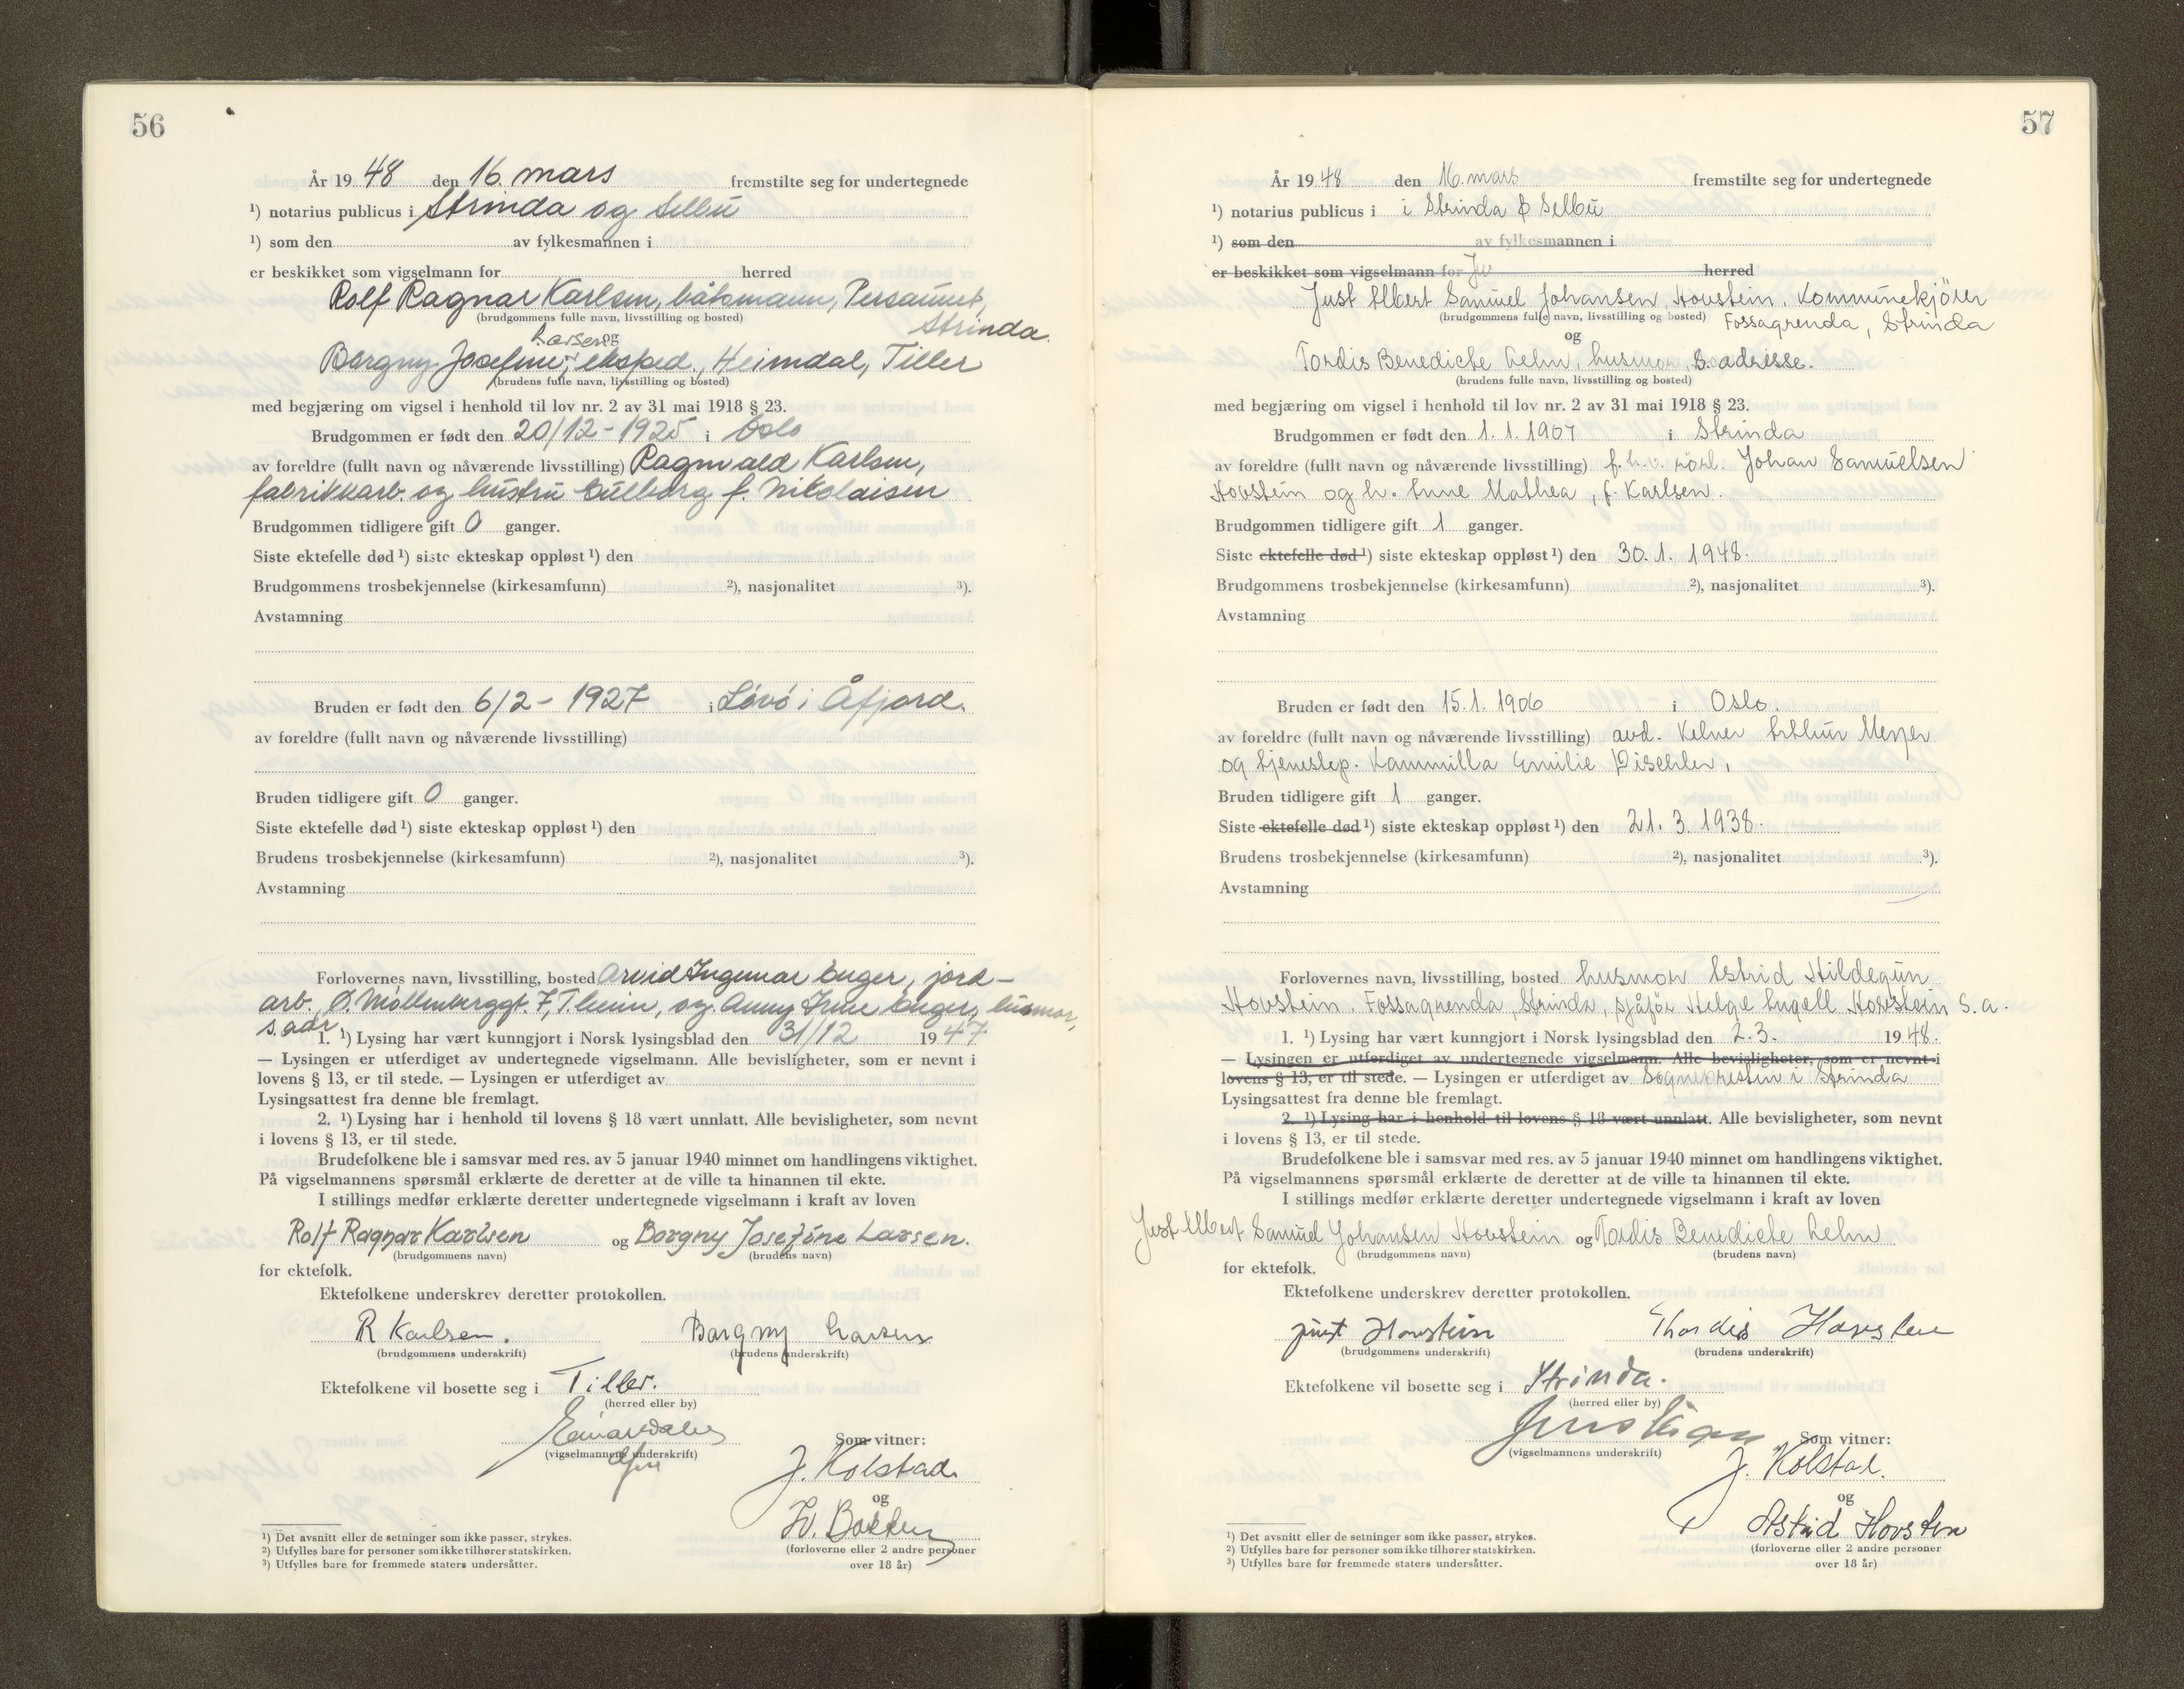 56
År 19 48 den 16. mars fremstilte seg for undertegnede
¹) notarius publicus i Strinda og Selbu
¹) som den av fylkesmannen i
er beskikket som vigselmann for herred
Rolf Ragnar Karlsen, båtsmann, Persaunet,
(brudgommens fulle navn, livsstilling og bosted) Strinda.
Larsen og
Borgny Josefine, eksped., Heimdal, Tiller
(brudens fulle navn, livsstilling og bosted)
med begjæring om vigsel i henhold til lov nr. 2 av 31 mai 1918 § 23.
Brudgommen er født den 20/12 - 1925 i Oslo
av foreldre (fullt navn og nåværende livsstilling) Ragnvald Karlsen,
fabrikkarb. og hustru Gulborg f. Nikolaisen
Brudgommen tidligere gift 0 ganger.
Siste ektefelle død ¹) siste ekteskap oppløst ¹) den
Brudgommens trosbekjennelse (kirkesamfunn) ²), nasjonalitet ³).
Avstamning
Bruden er født den 6/2 - 1927 i Lövö i Åfjord.
av foreldre (fullt navn og nåværende livsstilling)
Bruden tidligere gift 0 ganger.
Siste ektefelle død ¹) siste ekteskap oppløst ¹) den
Brudens trosbekjennelse (kirkesamfunn) ²), nasjonalitet ³).
Avstamning
Forlovernes navn, livsstilling, bosted Arvid Ingemar Enger, jord-
arb., Ø. Möllenberggt. 7, T.heim, og Anny Irene Enger, husmor,
s. adr.
1. ¹) Lysing har vært kunngjort i Norsk lysingsblad den 31/12 19 47
— Lysingen er utferdiget av undertegnede vigselmann. Alle bevisligheter, som er nevnt i
lovens § 13, er til stede. — Lysingen er utferdiget av
Lysingsattest fra denne ble fremlagt.
2. ¹) Lysing har i henhold til lovens § 18 vært unnlatt. Alle bevisligheter, som nevnt
i lovens § 13, er til stede.
Brudefolkene ble i samsvar med res. av 5 januar 1940 minnet om handlingens viktighet.
På vigselmannens spørsmål erklærte de deretter at de ville ta hinannen til ekte.
I stillings medfør erklærte deretter undertegnede vigselmann i kraft av loven
Rolf Ragnar Karlsen og Borgny Josefine Larsen.
(brudgommens navn) (brudens navn)
for ektefolk.
Ektefolkene underskrev deretter protokollen.
R Karlsen. Borgny Larsen
(brudgommens underskrift) (brudens underskrift)
Ektefolkene vil bosette seg i Tiller.
(herred eller by)
(vigselmannens underskrift) Som vitner:
J. Kolstad
og
(forloverne eller 2 andre personer
over 18 år)
¹) Det avsnitt eller de setninger som ikke passer, strykes.
²) Utfylles bare for personer som ikke tilhører statskirken.
³) Utfylles bare for fremmede staters undersåtter.
57
År 19 48 den 16. mars fremstilte seg for undertegnede
¹) notarius publicus i i Strinda & Selbu
¹) som den av fylkesmannen i
er beskikket som vigselmann for Ju herred
Just Albert Samuel Johansen Hovstein, Kommunekjörer
(brudgommens fulle navn, livsstilling og bosted) Fossagrenda, Strinda
og
Tordis Benedicte Lehn, husmor, s. adresse.
(brudens fulle navn, livsstilling og bosted)
med begjæring om vigsel i henhold til lov nr. 2 av 31 mai 1918 § 23.
Brudgommen er født den 1. 1. 1907 i Strinda
av foreldre (fullt navn og nåværende livsstilling) Johan Samuelsen
Hovstein og h. Anne Mathea, f. Karlsen.
Brudgommen tidligere gift 1 ganger.
Siste ektefelle død ¹) siste ekteskap oppløst ¹) den 30. 1. 1948.
Brudgommens trosbekjennelse (kirkesamfunn) ²), nasjonalitet ³).
Avstamning
Bruden er født den 15. 1. 1906 i Oslo.
av foreldre (fullt navn og nåværende livsstilling) avd. Kelner Arthur Meyer
og tjenestep. Kammilla Emilie Discher,
Bruden tidligere gift 1 ganger.
Siste ektefelle død ¹) siste ekteskap oppløst ¹) den 21. 3. 1938.
Brudens trosbekjennelse (kirkesamfunn) ²), nasjonalitet ³).
Avstamning
Forlovernes navn, livsstilling, bosted husmor Astrid Hildegun
Hovstein, Fossagrenda, Strinda, sjåför Helge Engell Hovstein s. a.
1. ¹) Lysing har vært kunngjort i Norsk lysingsblad den 2. 3. 19 48.
— Lysingen er utferdiget av undertegnede vigselmann. Alle bevisligheter, som er nevnt i
lovens § 13, er til stede. — Lysingen er utferdiget av Sognepresten i Strinda
Lysingsattest fra denne ble fremlagt.
2. ¹) Lysing har i henhold til lovens § 18 vært unnlatt. Alle bevisligheter, som nevnt
i lovens § 13, er til stede.
Brudefolkene ble i samsvar med res. av 5 januar 1940 minnet om handlingens viktighet.
På vigselmannens spørsmål erklærte de deretter at de ville ta hinannen til ekte.
I stillings medfør erklærte deretter undertegnede vigselmann i kraft av loven
Just Albert Samuel Johansen Hovstein og Tordis Benedicte Lehn
(brudgommens navn) (brudens navn)
for ektefolk.
Ektefolkene underskrev deretter protokollen.
Just Hovstein Thordis Hovsten
(brudgommens underskrift) (brudens underskrift)
Ektefolkene vil bosette seg i Strinda.
(herred eller by)
(vigselmannens underskrift) Som vitner:
J. Kolstad.
og
Astrid Hovsten
(forloverne eller 2 andre personer
over 18 år)
¹) Det avsnitt eller de setninger som ikke passer, strykes.
²) Utfylles bare for personer som ikke tilhører statskirken.
³) Utfylles bare for fremmede staters undersåtter.